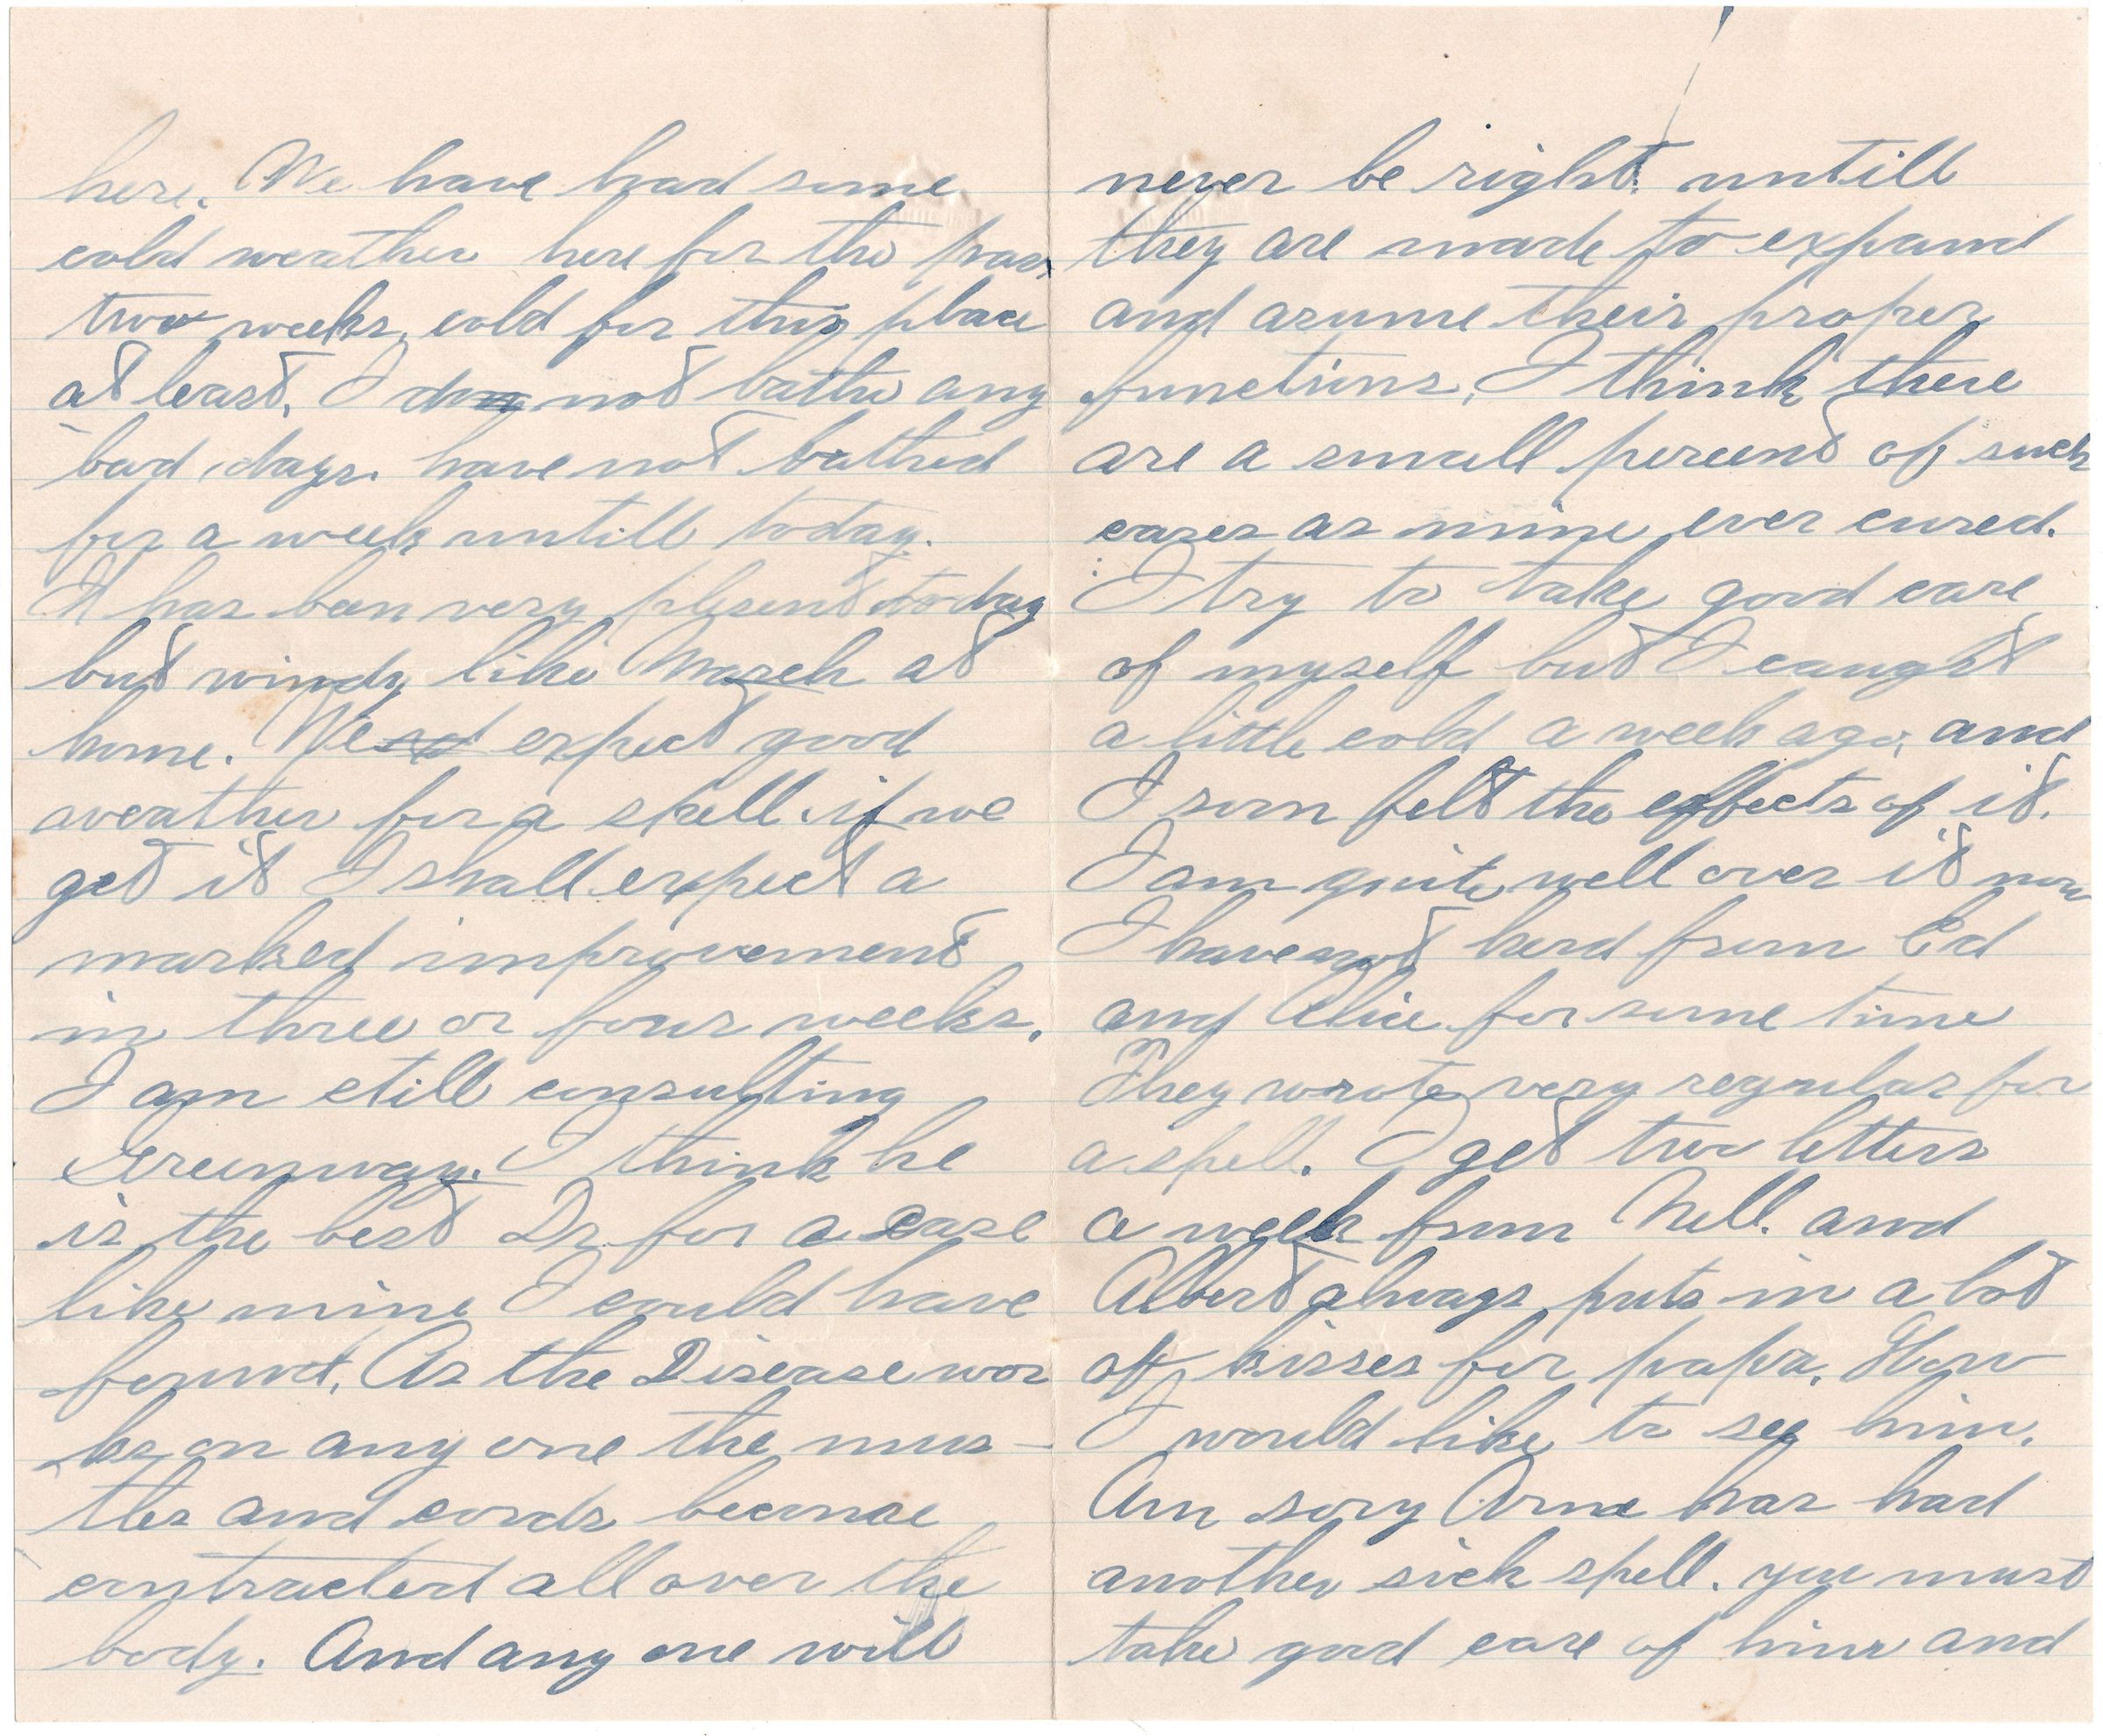 here. We have had some
cold weather here for the pas
two weeks, cold for this place
at least. I do not bathe any
bad days. have not bathed
for a week untill today.
It has been very plesent today
but windy like March at
home. We expect good
weather for a spell. if we
get it I shall expect a
marked improvement
in three or four weeks.
I am still consulting
Greenway. I think he
is the best Dr. for a case
like mine I could have
found. As the Disease wor
ks on any one the mus-
tles and cords become
contracted all over the
body. And any one will
never be right untill
they are made to expand
and asume their proper
functions, I think there
are a small percent of such
cases as mine ever cured.
I try to take good care
of myself but I caught
a little cold a week ago, and
I soon felt the effects of it.
I am quite well over it now
I have not herd from Ed
and Alice for some time
They wrote very regular for
a spell. I get two letters
a week from Nell. and
Albert always puts in a lot
of kisses for papa. How
I would like to see him.
Am sory Arne has had
another sick spell. you must
take good care of him and